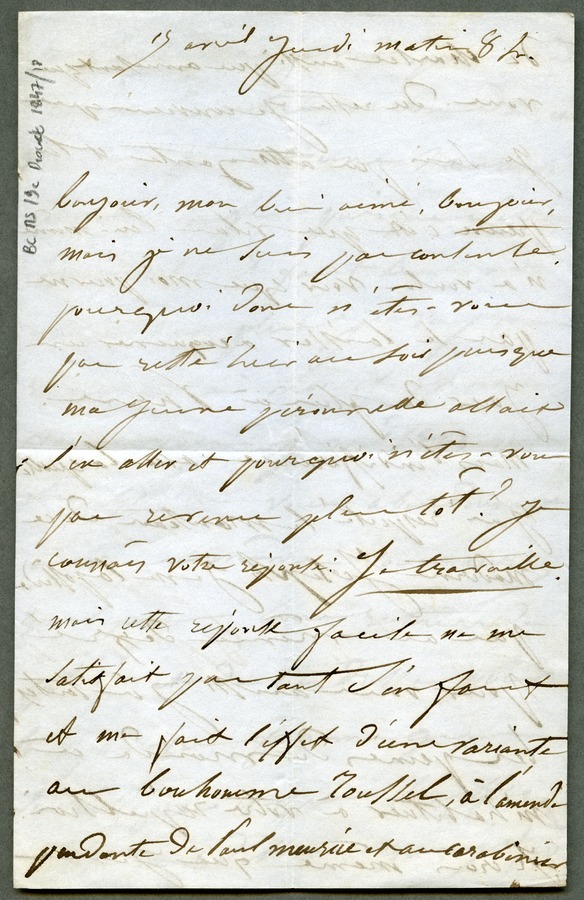 15 avril jeudi matin 8 h.
BC MS 19c Drouet 1847/18
bonjour, mon bien aimé, bonjour,
mais je ne suis pas contente.
pourquoi donc n'êtes-vous
pas resté hier au soir puisque
ma jeune péronnelle allait
s'en aller et pourquoi n'êtes-vous
pas revenu plus tôt? Je
connais votre réponse. Je travaille.
mais cette réponse facile ne me
satisfait pas tant s'en faut
et me fait l'effet d'une variante
au bonhomme Toussel, à l'amende
pendante de Paul meurice et au carabinier